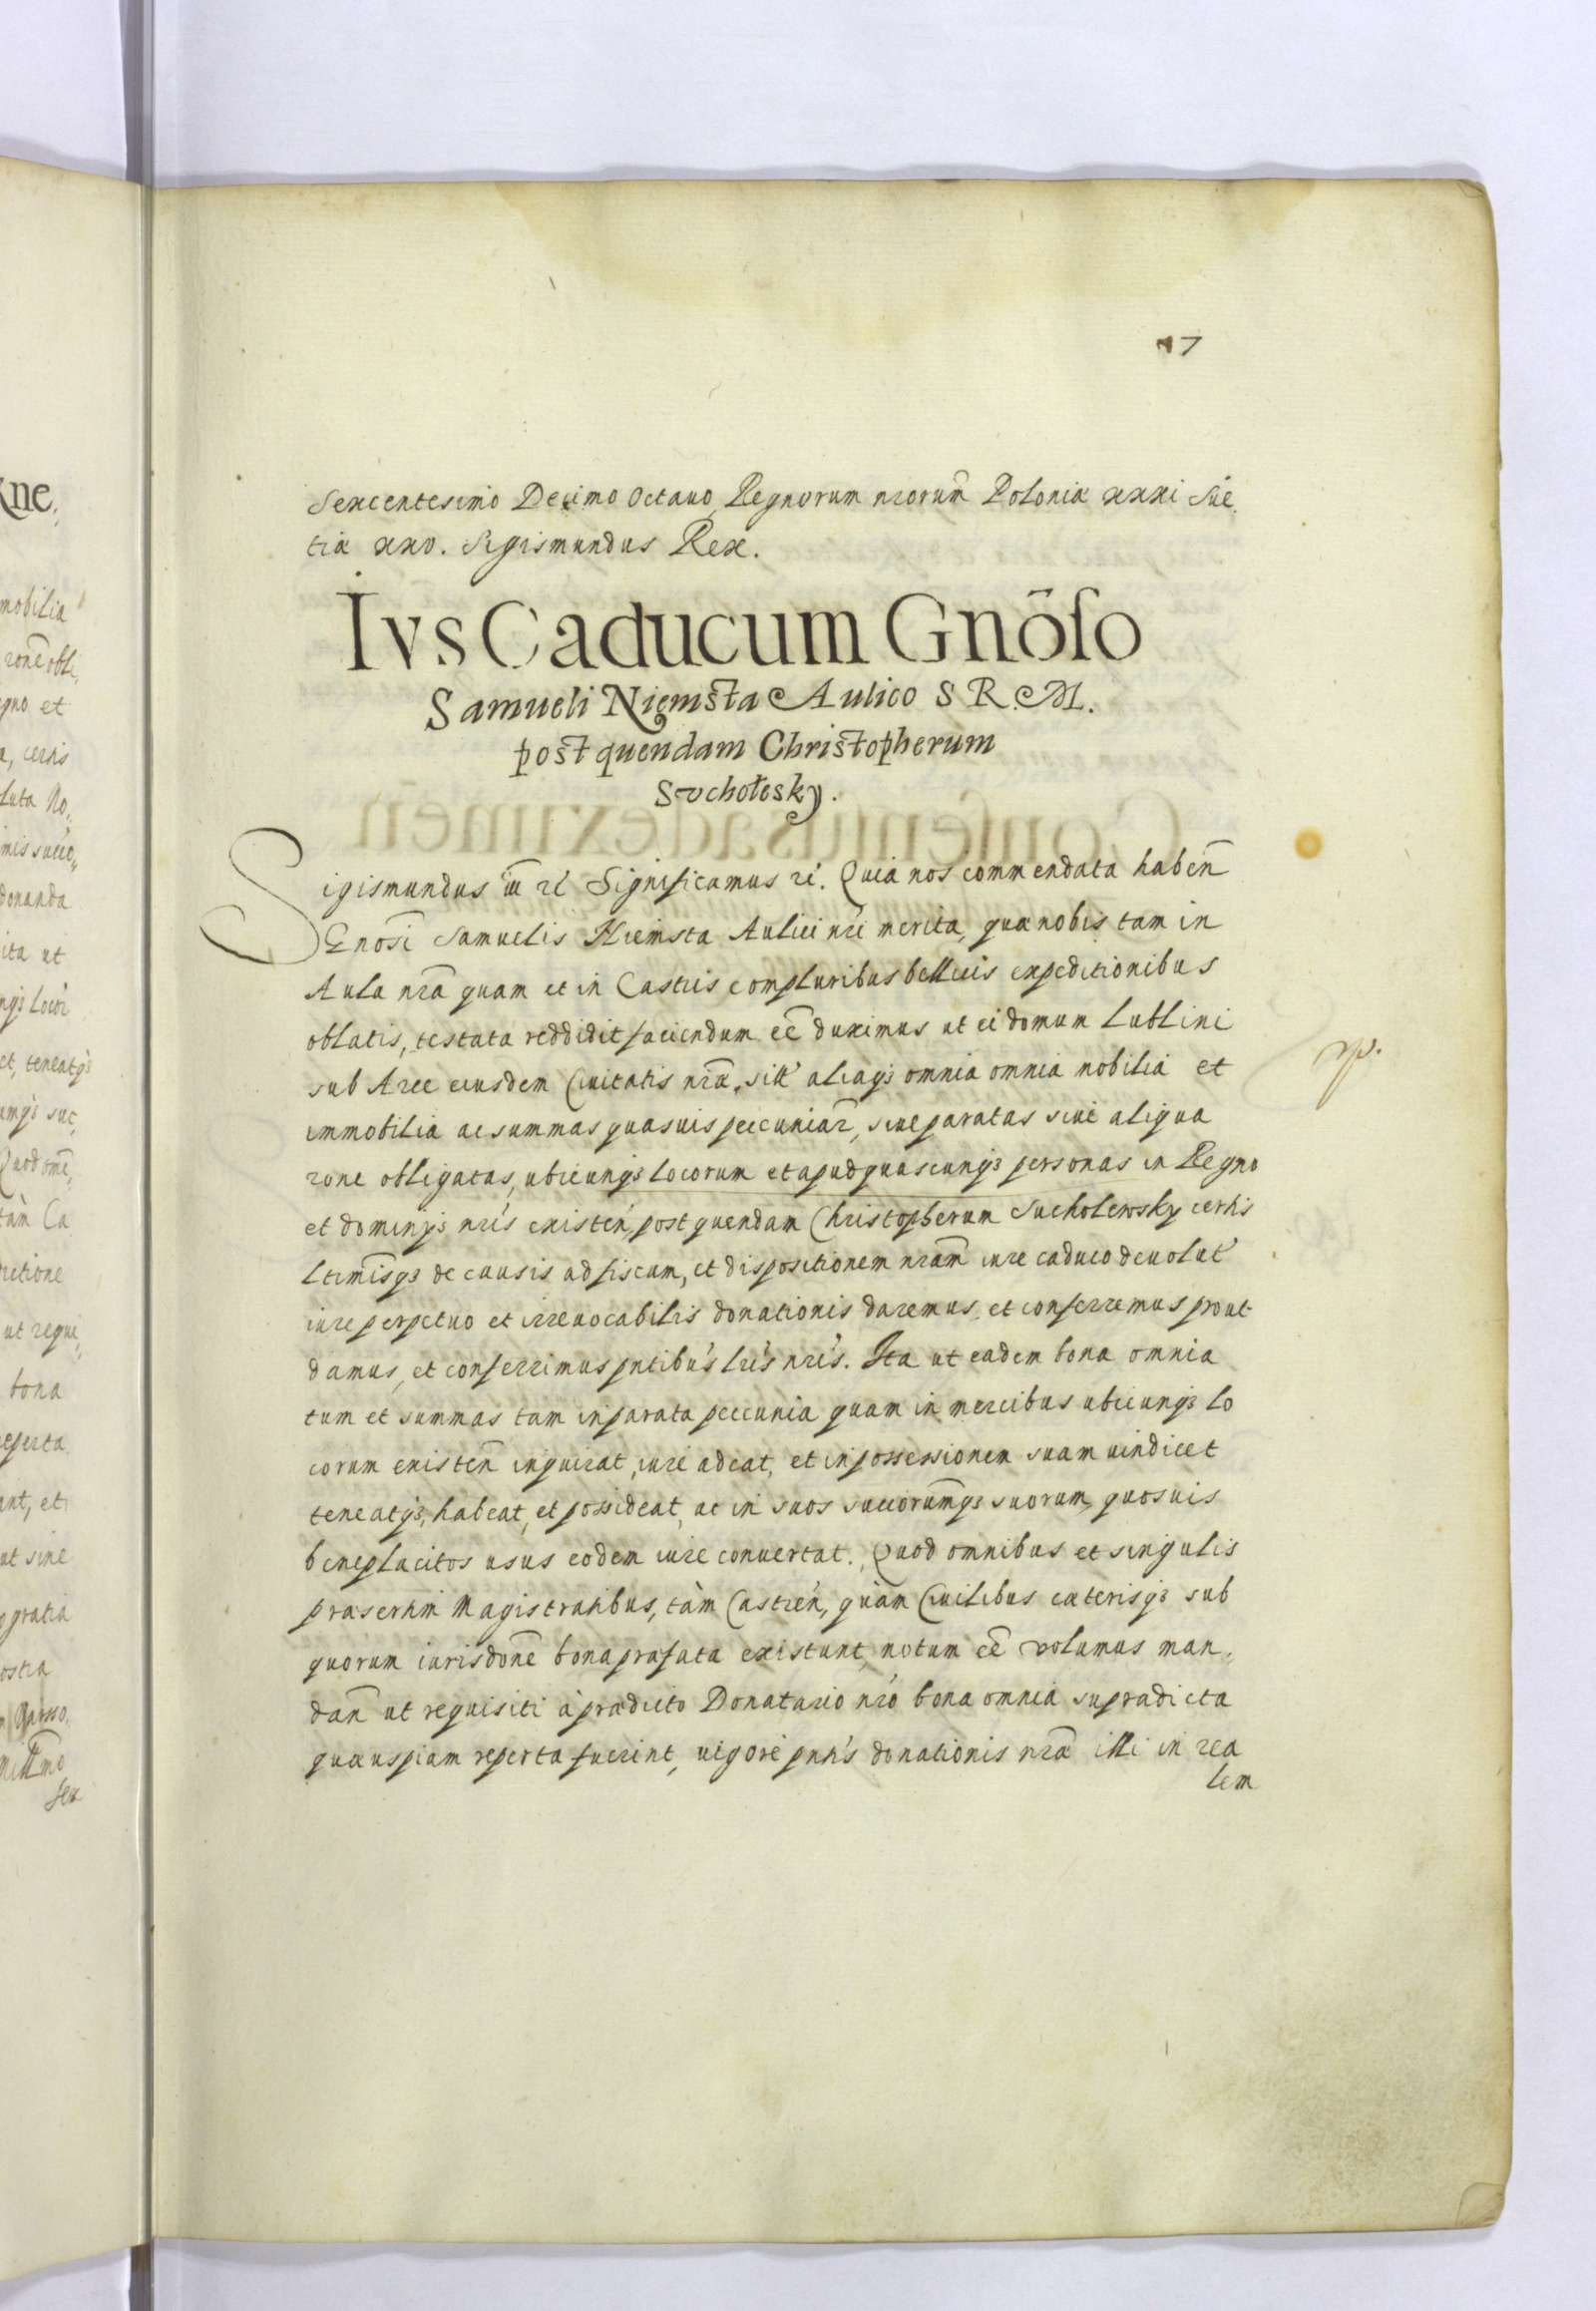 17
Sexcentesimo Decimo Octavo, Regnorum nrorum Poloniæ xxxi Sue,
tiæ xxv. Sigismundus Rex.
Ius Caducum Gnōso
Samueli Niemsta Aulico S R. M.
post quendam Christopherum
Sucholesky.
Sigismundus iii rē Significamus rē. Quia nos commendata habeñ
Gnosi Samuelis Niemsta Aulici nri merita, quæ nobis tam in
Aula nrā quam et in Castris compluribus bellicis expeditionibus
oblatis, testata reddidit faciendum eē duximus ut ei domum Lublini
sub Arce eiusdem Civitatis nrā, sitt aliaqȝ omnia omnia nobilia et
immobilia ac summas quasuis pecuniar̄, siue paratas siue aliqua
rone obligatas, ubicunqȝ locorum et apud quascunqȝ personas in Regno
et dominys nris existen, post quendam Christopherum Sucholewsky certis
Ltimīsqȝ de causis ad fiscum, et dispositionem nram̄ iure caduco deuolut
iure perpetuo et irreuocabilis donationis daremus et conferremus prout
damus, et conferrimus pntibus lris nris. Ita ut eadem bona omnia
tum et summas tam in parata pecunia quam in mercibus ubicunqȝ lo
corum existeñ inquirat, iure adeat, et in possessionem suam uindicet
teneatqȝ, habeat, et possideat, ac in suos succorum̄qȝ suorum, quosuis
beneplacitos usus eodem iure conuertat. Quod omnibus et singulis
præsertim Magistratibus, tàm Castren, quàm Civilibus cæterisqȝ sub
quorum iurisdone bona præfata existunt, notum eē volumus man,
dañ ut requisiti à prædicto Donatario nro bona omnia supradicta
quæ uspiam reperta fuerint, uigore pntis donationis nræ illi in rea
lem